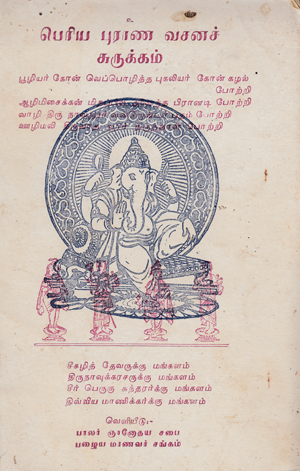 பெரிய புராண வசனச்
சுருக்கம்
பூழியர் கோன் வெப்பொழித்த புகலியர் கோன் கழல்
போற்றி
ஆழிமிசைக்கன் பிரானடி போற்றி
வாழி திரு போற்றி
ஊழிமலி போற்றி
சீகழித் தேவருக்கு மங்களம்
திருநாவுக்கரசருக்கு மங்களம்
சீர் பெருகு சுந்தரர்க்கு மங்களம்
திவ்விய மாணிக்கர்க்கு மங்களம்
வெளியீடு:-
பாலர் ஞானோதய சபை
பழைய மாணவர் சங்கம்